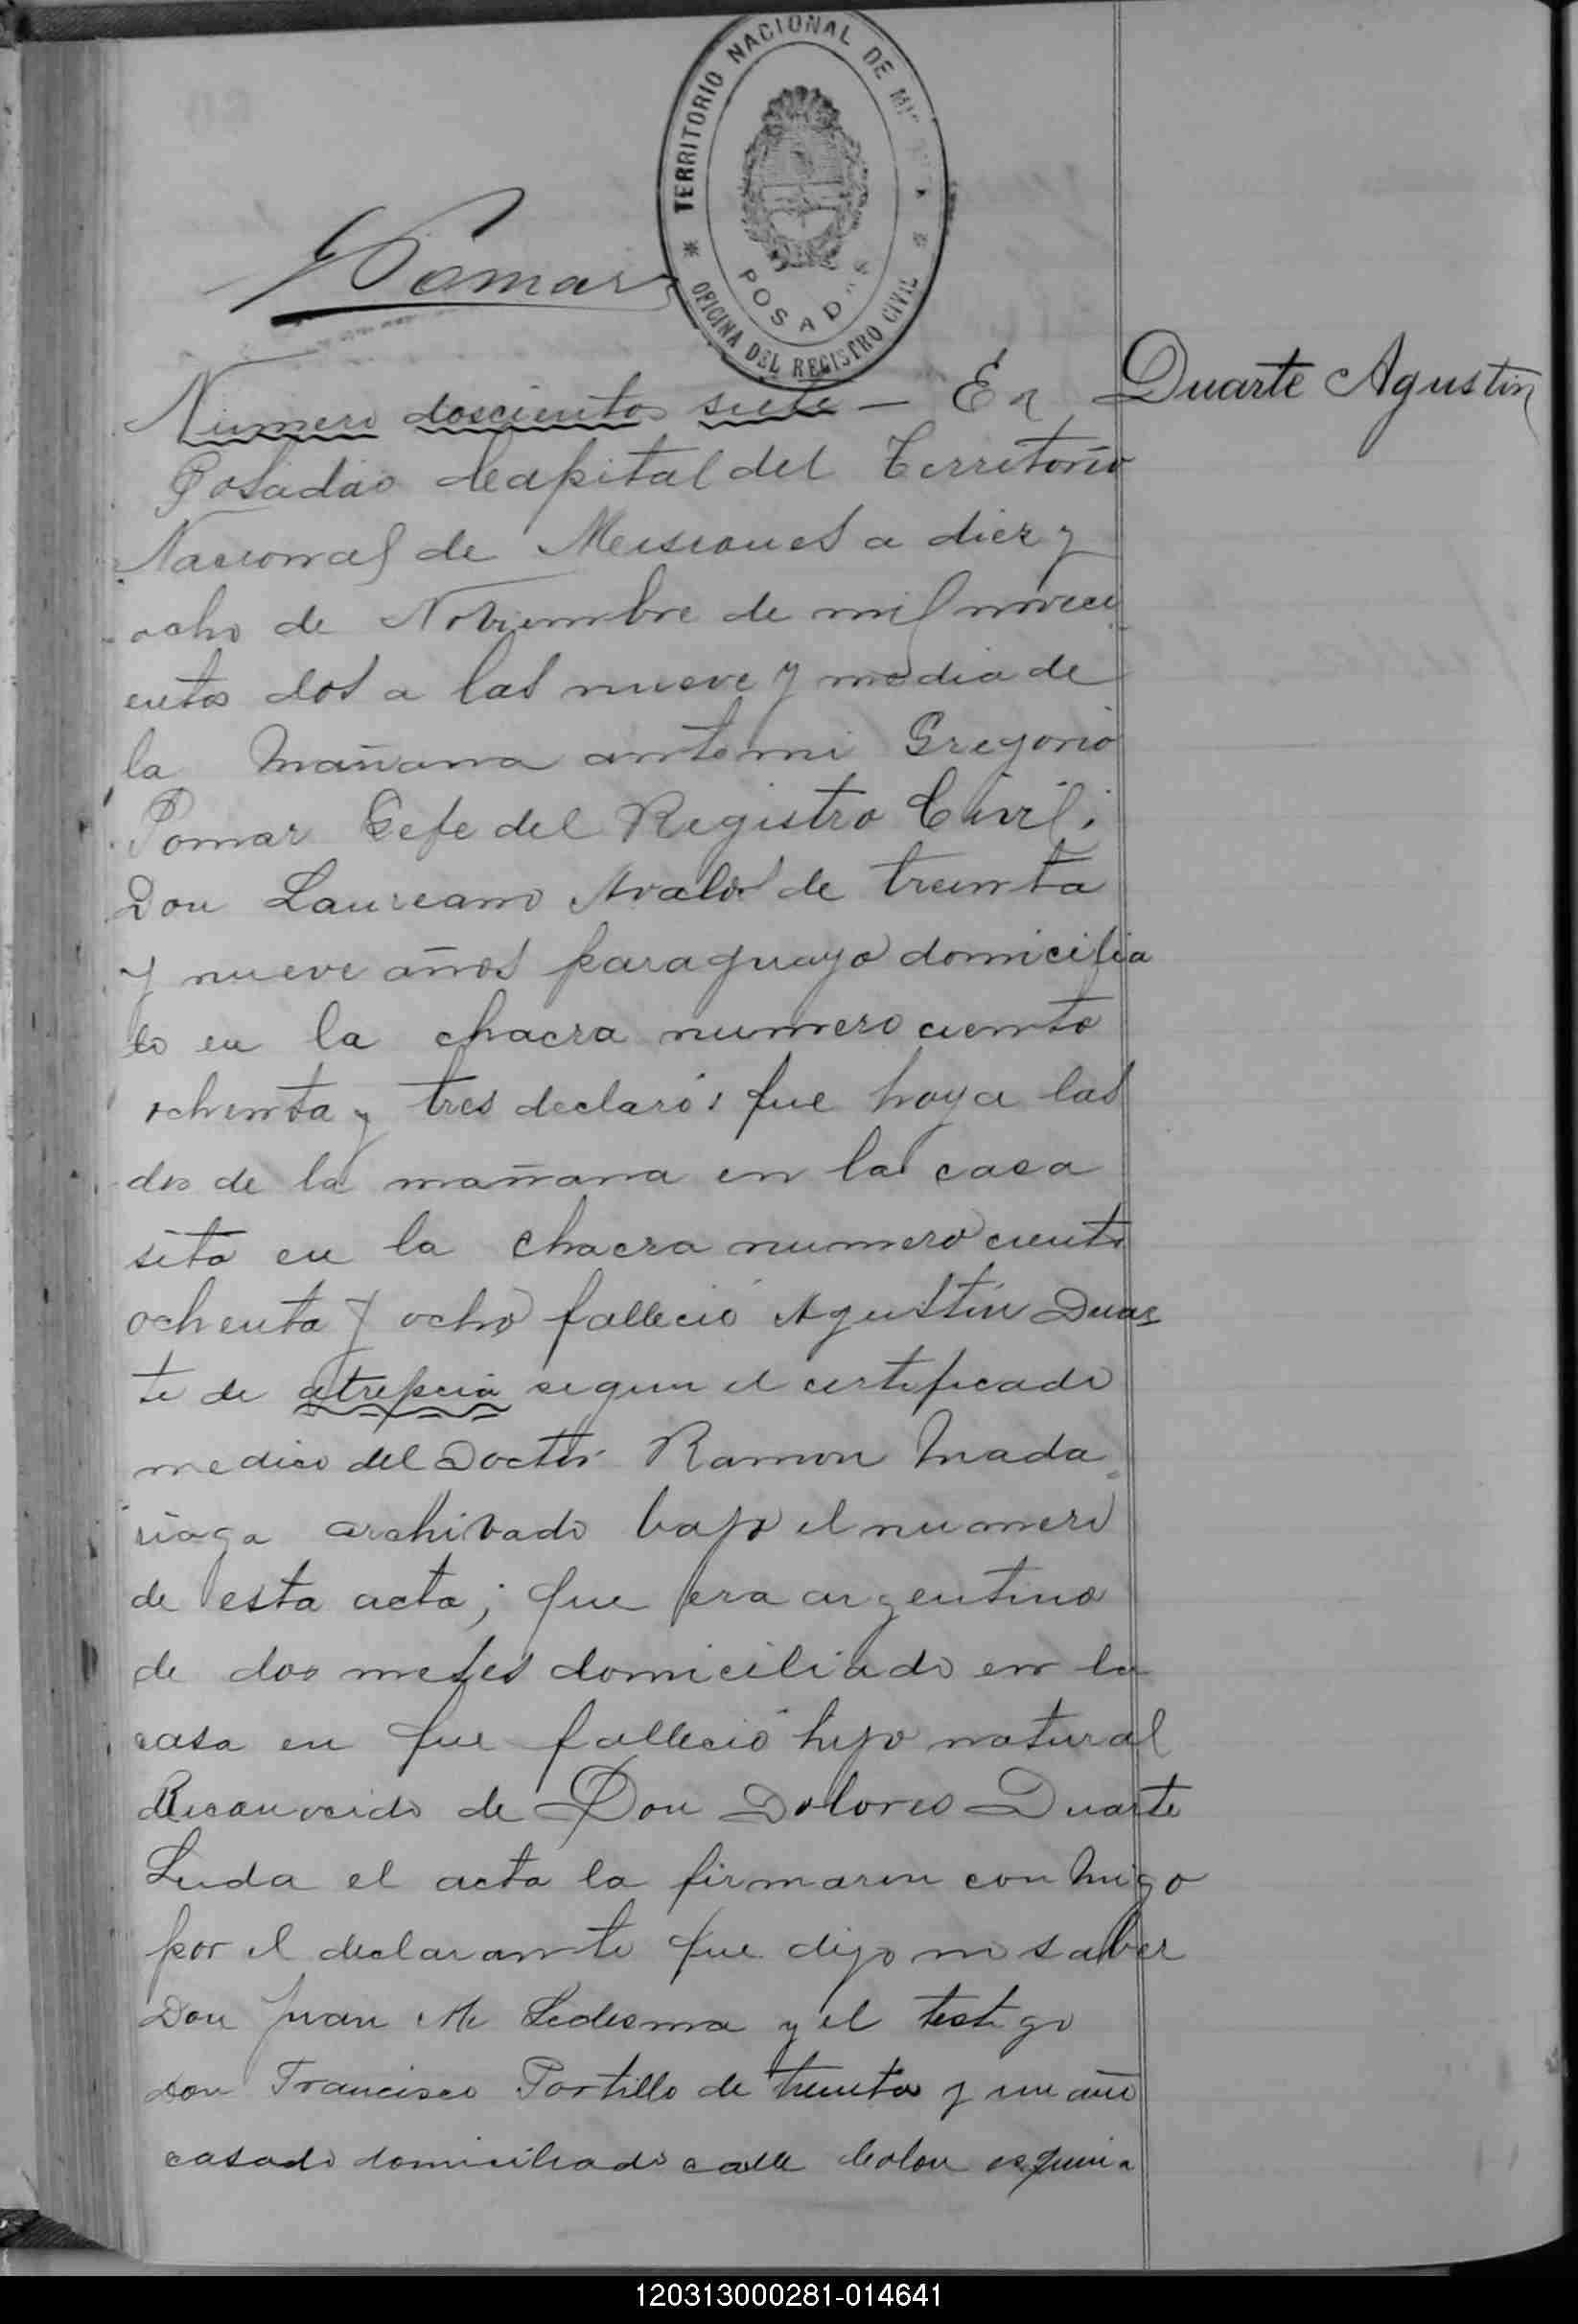 TERRITORIO NACIONAL DE
POSAD
OFICINA DEL REGISTRO CIVIL
Pomar
Duarte Agustin
Numero doscientos siete — En
Posadas Capital del Territorio
Nacional de Misiones a diez y
ocho de Noviembre de mil noveci
entos dos a las nueve y media de
la mañana ante mi Gregorio
Pomar Gefe del Registro Civil;
Don Laureano Avalos de treinta
y nueve años paraguayo domicilia
do en la chacra numero ciento
ochenta y tres declaró: que hoy a las
dos de la mañana en la casa
sita en la chacra numero ciento
ochenta y ocho falleció Agustín Duar
te de atrepcia segun el certificado
medico del Doctor Ramon Mada
riaga archivado bajo el numero
de esta acta; que era argentino
de dos meses domiciliado en la
casa en que falleció hijo natural
de Don Dolores Duarte
Leida el acta la firmaron conmigo
por el declarante que dijo no saber
Don Juan M Ledesma y el testigo
don Francisco Portillo de treinta y un año
casado domiciliado calle Colon esquina
120313000281-014641